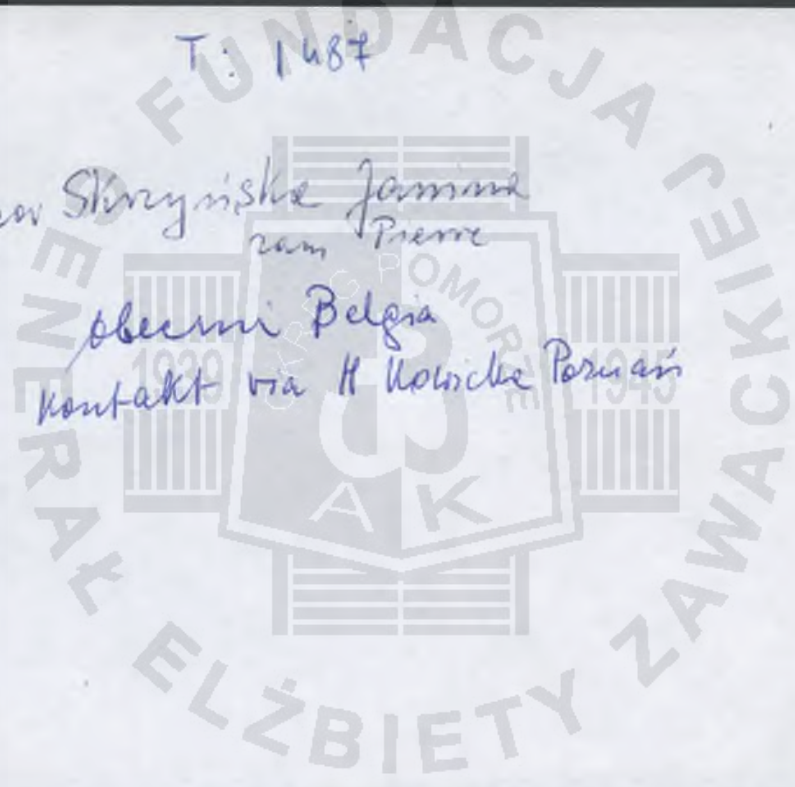 T: 1487
Skrzyńska Janina
zam Pierre
obecni Belgia
kontakt via H Poznań
FUNDACJA
GENERAŁ ELŻBIETY ZAWACKIEJ
OKRĘG POMORZE
1939 1945
AK